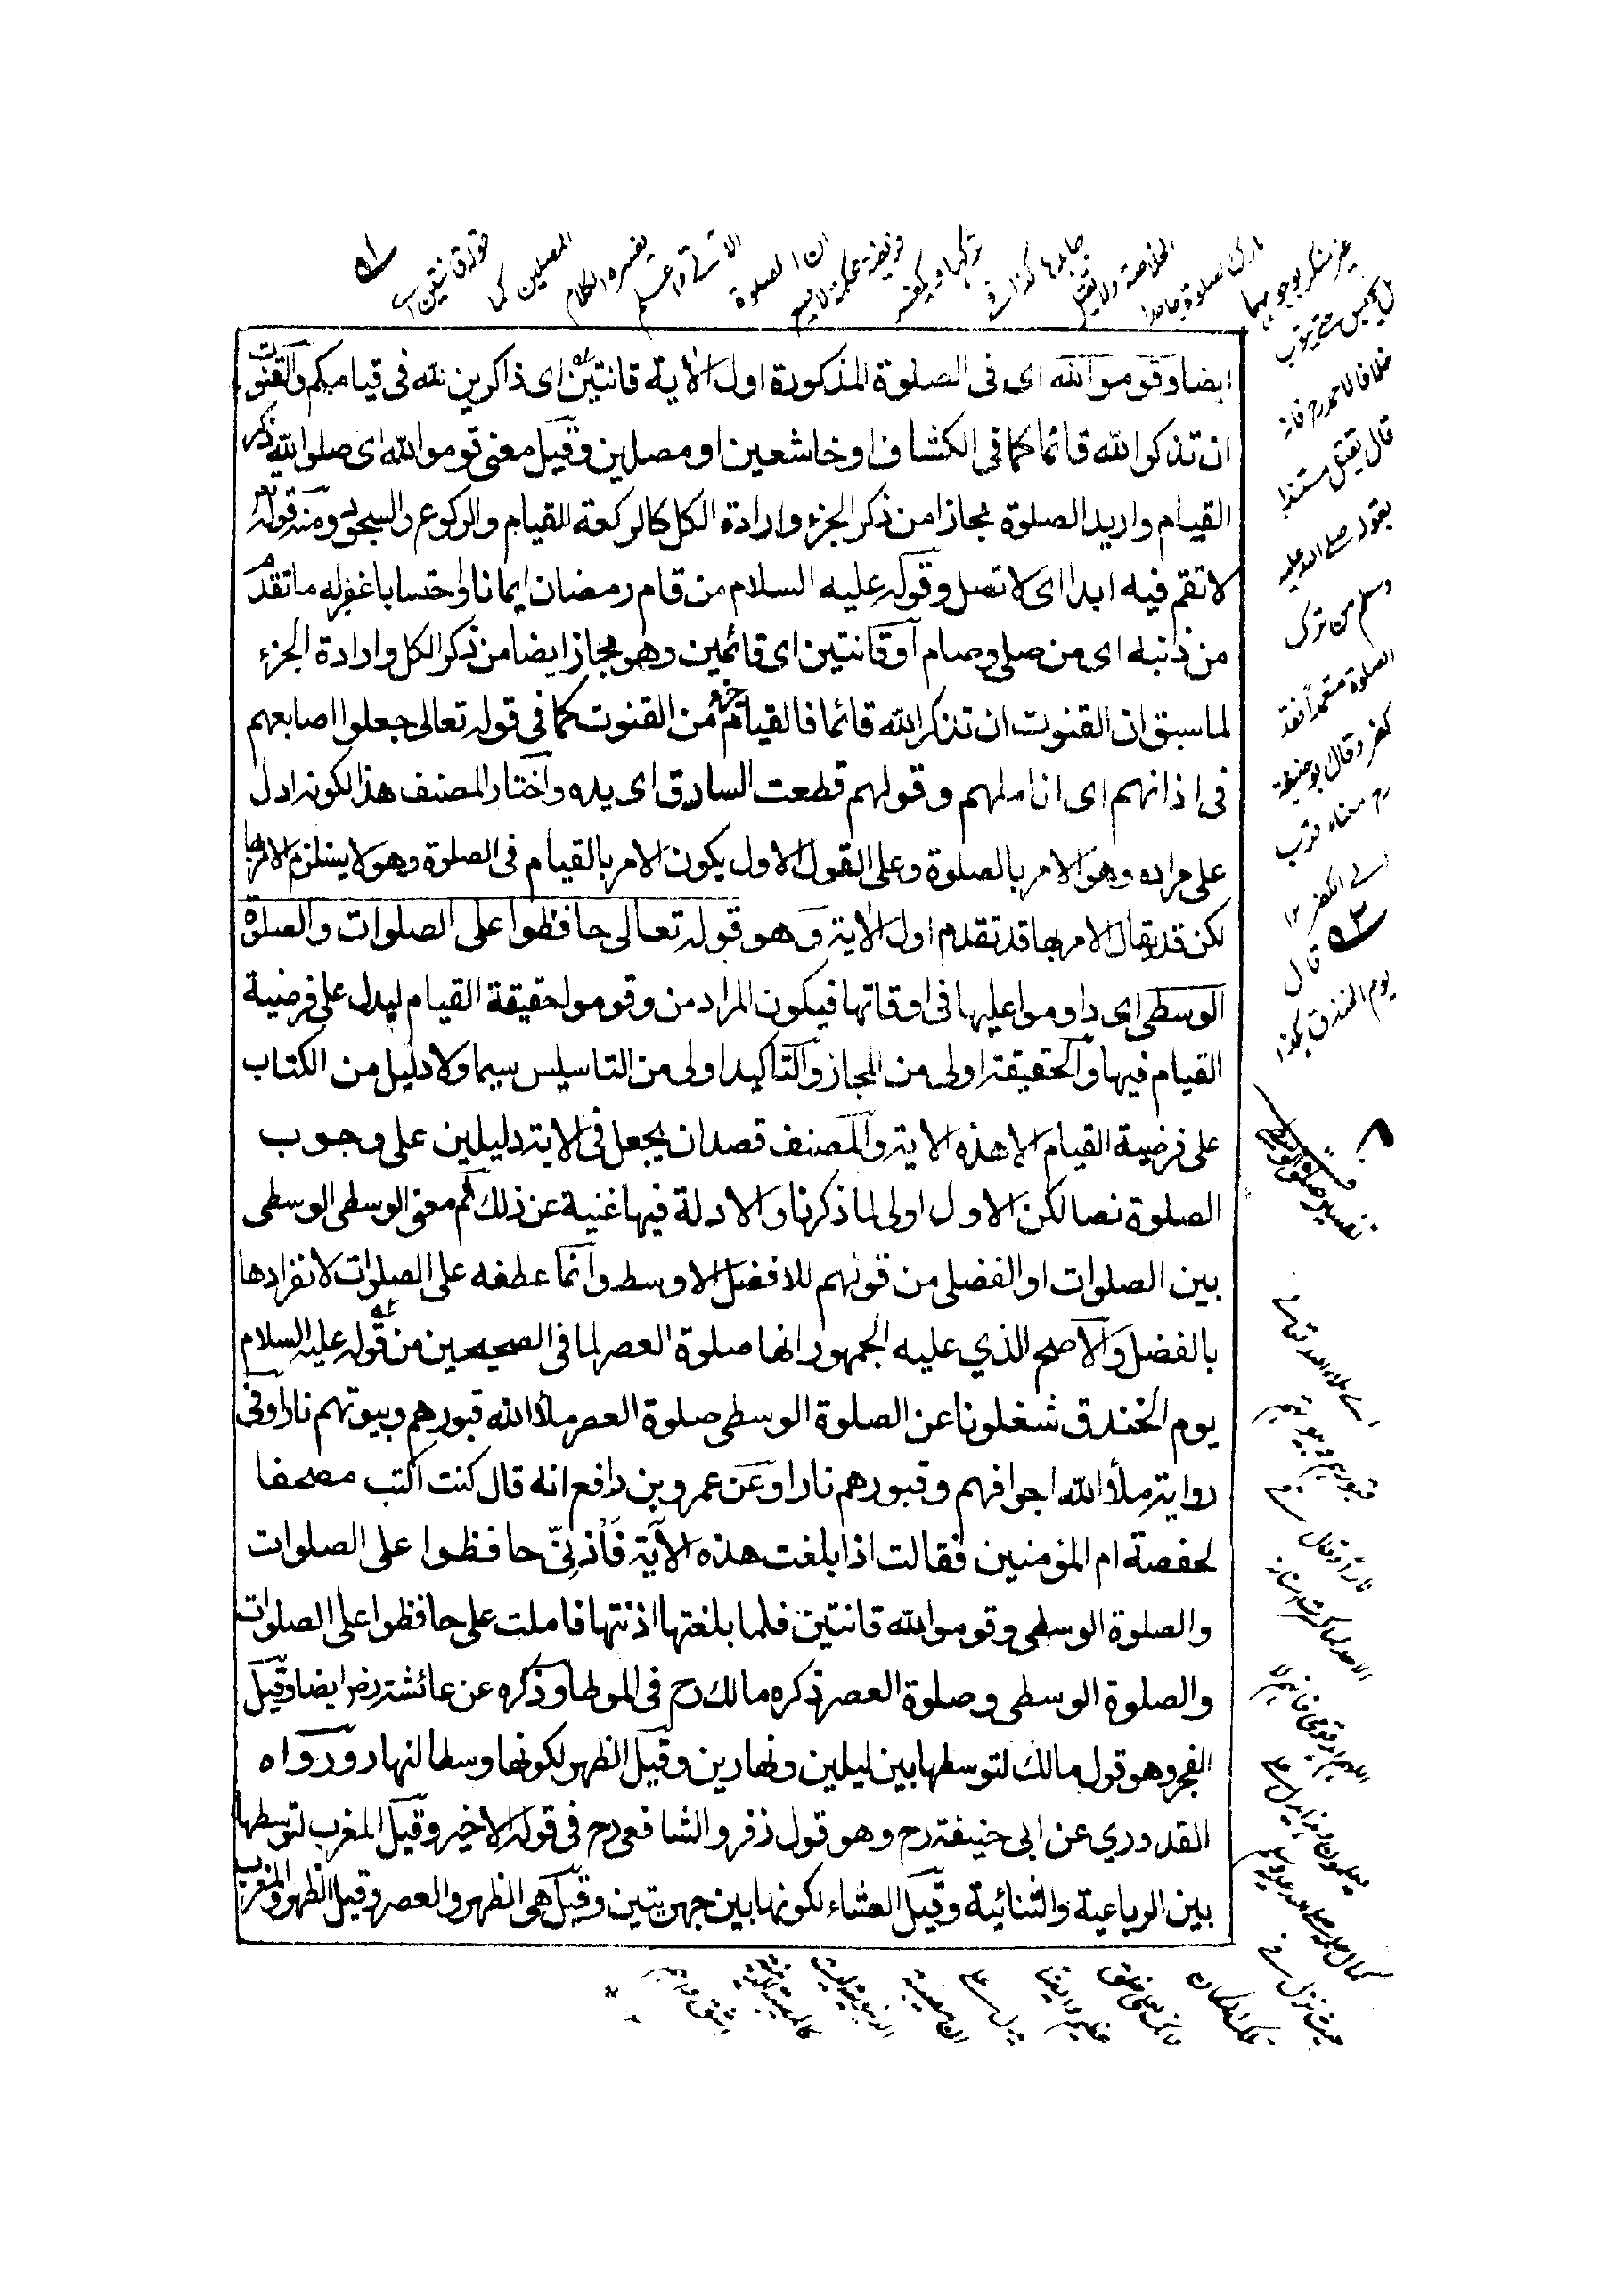 ايضا وقوموا لله اى فى الصلوة المذكورة اول الاية قانتين اى ذاكرين لله فى قيامكم والقنوت
ان تذكر الله قائما كما فى الكشاف او خاشعين او مصلين وقيل معنى قوموا لله اى صلوا لله ذكر
القيام واريد الصلوة مجازا من ذكر الجزء وارادة الكل كالركعة للقيام والركوع والسجود ومنه قوله تعالى
لا تقم فيه ابدا اى لا تصل وقوله عليه السلام من قام رمضان ايمانا واحتسابا غفر له ما تقدم
من ذنبه اى من صلى وصام او قانتين اى قائمين وهو مجاز ايضا من ذكر الكل وارادة الجزء
لما سبق ان القنوت ان تذكر الله قائما فالقيام جزء من القنوت كما فى قوله تعالى جعلوا اصابعهم
فى اذانهم اى اناملهم وقولهم قطعت السارق اى يده واختار المصنف هذا لكونه ادل
على مراده وهو الامر بالصلوة وعلى القول الاول يكون الامر بالقيام فى الصلوة وهو لا يستلزم الامر بها
لكن قد يقال الامر بها قد تقدم اول الاية وهو قوله تعالى حافظوا على الصلوات والصلوة
الوسطى اى داوموا عليها فى اوقاتها فيكون المراد من وقوموا حقيقة القيام ليدل على فرضية
القيام فيها والحقيقة اولى من المجاز والتاكيد اولى من التاسيس سيما ولا دليل من الكتاب
على فرضية القيام الا هذه الاية والمصنف قصد ان يجعل فى الاية دليلين على وجوب
الصلوة نصا لكن الاول اولى لما ذكرنا والادلة فيها غنية عن ذلك ثم معنى الوسطى الوسطى
بين الصلوات او الفضلى من قولهم للافضل الاوسط وانما عطفه على الصلوات لانفرادها
بالفضل والاصح الذي عليه الجمهور انها صلوة العصر لما فى الصحيحين من قوله عليه السلام
يوم الخندق شغلونا عن الصلوة الوسطى صلوة العصر ملأ الله قبورهم وبيوتهم نارا وفى
رواية ملأ الله اجوافهم وقبورهم نارا وعن عمرو بن رافع انه قال كنت اكتب مصحفا
لحفصة ام المؤمنين فقالت اذا بلغت هذه الآية فآذنّي حافظوا على الصلوات
والصلوة الوسطى وقوموا لله قانتين فلما بلغتها اذنتها فاملت على حافظوا على الصلوات
والصلوة الوسطى وصلوة العصر ذكره مالك رح فى الموطا وذكره عن عائشة رض ايضا وقيل
الفجر وهو قول مالك لتوسطها بين ليلين ونهارين وقيل الظهر لكونها وسط النهار ورواه
القدوري عن ابى حنيفة رح وهو قول زفر والشافعى رح فى قوله الاخير وقيل المغرب لتوسطها
بين الرباعية والثنائية وقيل العشاء لكونها بين جهريتين وقيل هى الظهر والعصر وقيل الظهر والمغرب
خلافا لاحمد رح فانه
قال يقتل مستندا
بقوله صلى الله عليه
وسلم من ترك
الصلوة متعمدا فقد
كفر وقال ابو حنيفة
رح معناه قرب
الى الكفر ١٢
قال
يوم الخندق
تفسير صلوة الوسطى